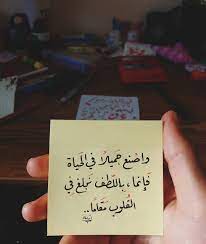 واصنع جميلًا في الحياة
فإنما، باللطف نبلغ في
القلوب مقامًا..